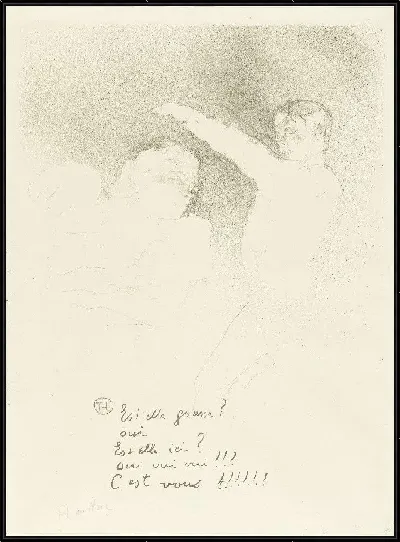 Est elle grasse?
oui
Est elle ici?
oui oui oui !!!
C'est vous !!!!!!